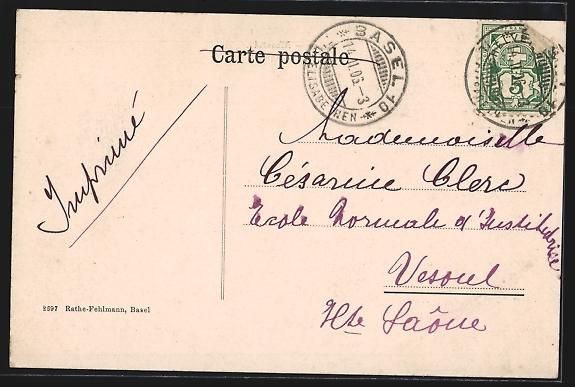 Carte postale
BASEL 10
14.VI.06.-3
Imprimé
Mademoiselle
Césarine Clerc
Ecole Normale d'Institutrice
Vesoul
Hte Saône
8697 Rathe-Fehlmann, Basel